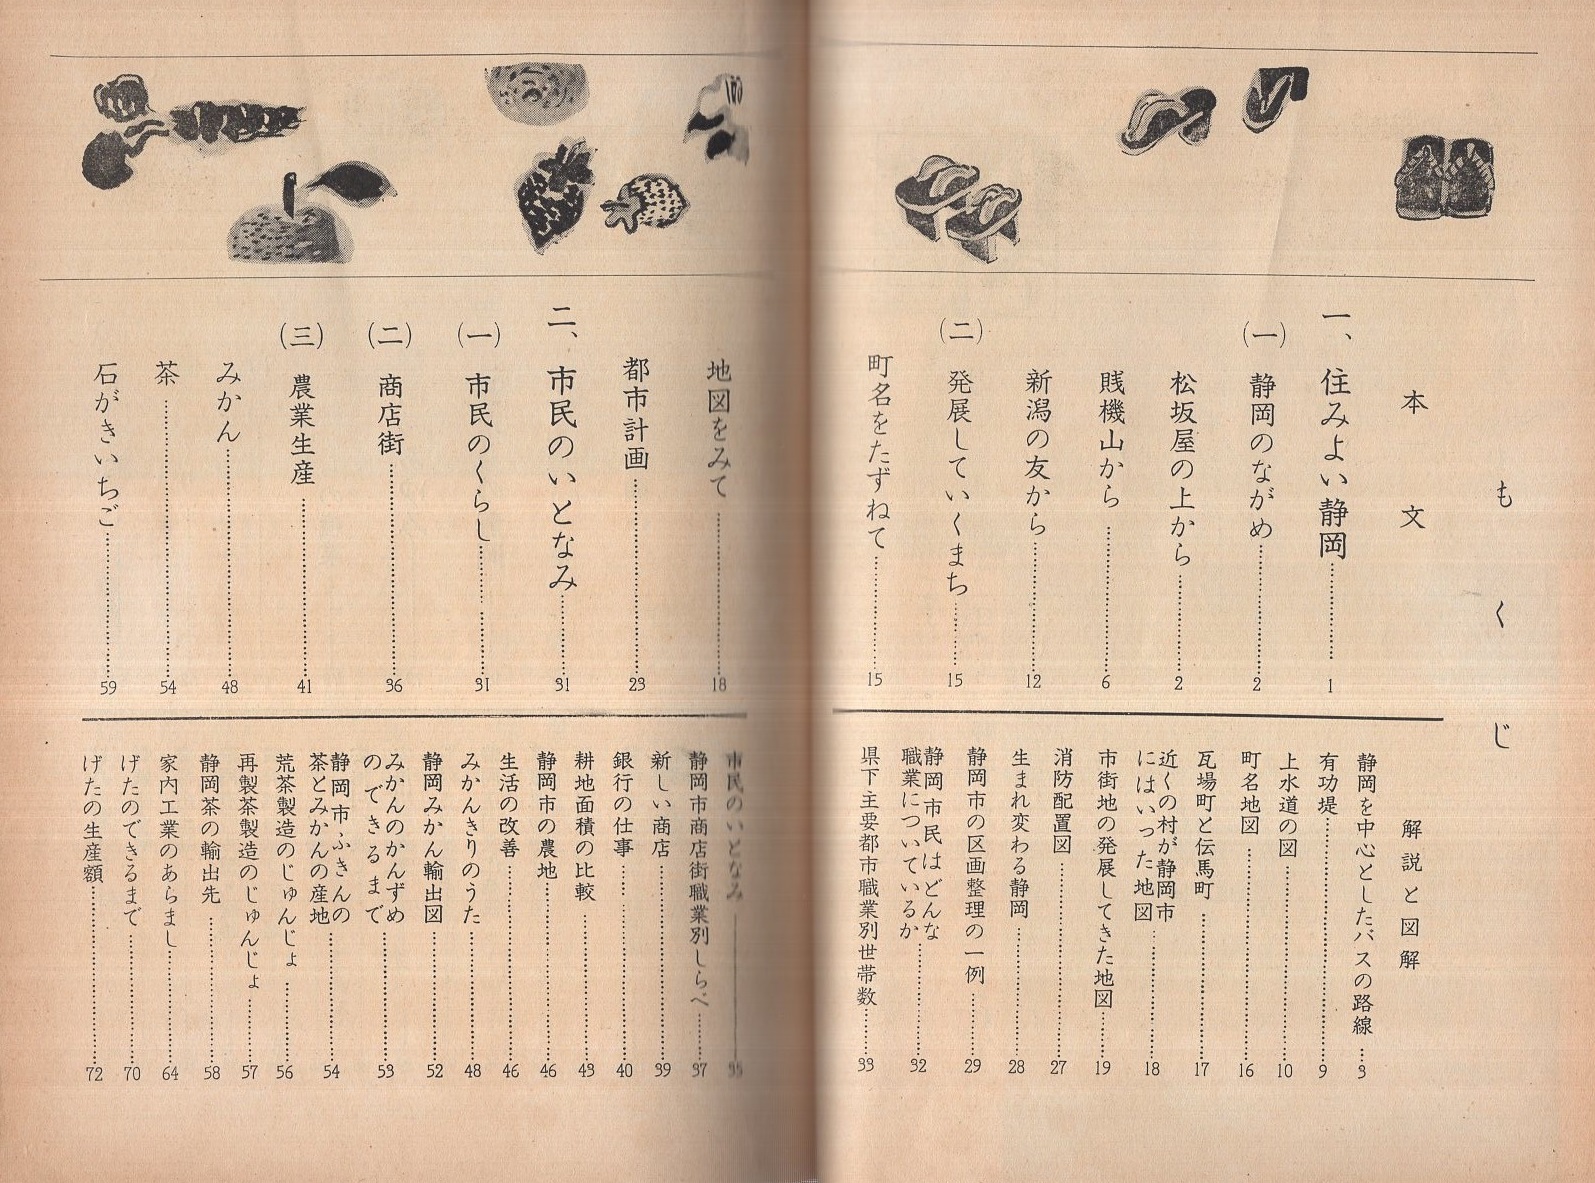 もくじ
本文
一、住みよい静岡……1
(一)静岡のながめ……2
松坂屋の上から……2
賎機山から……6
新潟の友から……12
(二)発展していくまち……15
町名をたずねて……15
地図をみて……18
都市計画……23
二、市民のいとなみ……31
(一)市民のくらし……31
(二)商店街……36
(三)農業生産……41
みかん……48
茶……54
石がきいちご……59
解説と図解
静岡を中心としたバスの路線…3
有功堤……9
上水道の図……10
町名地図……16
瓦場町と伝馬町……17
近くの村が静岡市
にはいった地図……18
市街地の発展してきた地図……19
消防配置図……27
生まれ変わる静岡……28
静岡市の区画整理の一例……29
静岡市民はどんな
職業についているか……32
県下主要都市職業別世帯数……33
市民のいとなみ……35
静岡市商店街職業別しらべ……37
新しい商店……39
銀行の仕事……40
耕地面積の比較……43
静岡市の農地……46
生活の改善……46
みかんきりのうた……48
静岡みかん輸出図……52
みかんのかんずめ
のできるまで……53
静岡市ふきんの
茶とみかんの産地……54
荒茶製造のじゅんじょ……56
再製茶製造のじゅんじょ……57
静岡茶の輸出先……58
家内工業のあらまし……64
げたのできるまで……70
げたの生産額……72